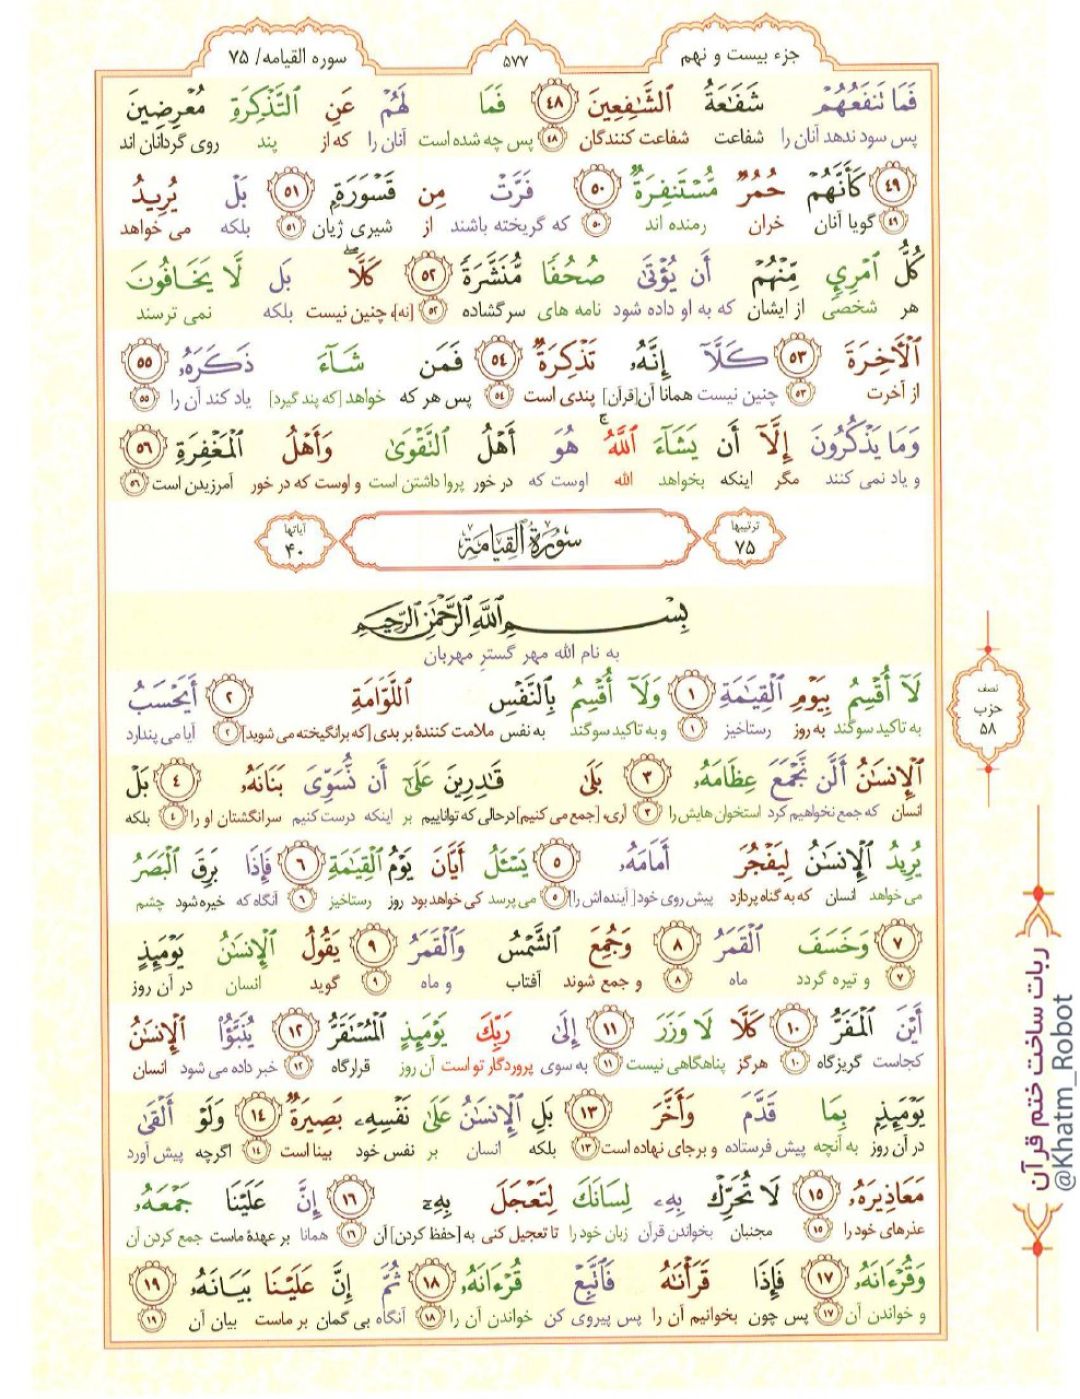 جزء بیست و نهم
۵۷۷
سوره القیامه/ ۷۵
فَمَا تَنفَعُهُمْ شَفَٰعَةُ ٱلشَّٰفِعِينَ ٤٨ فَمَا لَهُمْ عَنِ ٱلتَّذْكِرَةِ مُعْرِضِينَ
پس سود ندهد آنان را شفاعت شفاعت کنندگان ٤٨ پس چه شده است آنان را که از پند روی گردانان اند
٤٩ كَأَنَّهُمْ حُمُرٌ مُّسْتَنفِرَةٌ ٥٠ فَرَّتْ مِن قَسْوَرَةٍۭ ٥١ بَلْ يُرِيدُ
٤٩ گویا آنان خران رمنده اند ٥٠ که گریخته باشند از شیری ژیان ٥١ بلکه می خواهد
كُلُّ ٱمْرِئٍ مِّنْهُمْ أَن يُؤْتَىٰ صُحُفًا مُّنَشَّرَةً ٥٢ كَلَّا ۖ بَل لَّا يَخَافُونَ
هر شخصی از ایشان که به او داده شود نامه های سرگشاده ٥٢ [نه]، چنین نیست بلکه نمی ترسند
ٱلْـَٔاخِرَةَ ٥٣ كَلَّآ إِنَّهُۥ تَذْكِرَةٌ ٥٤ فَمَن شَآءَ ذَكَرَهُۥ ٥٥
از آخرت ٥٣ چنین نیست همانا آن[قرآن] پندی است ٥٤ پس هر که خواهد [که پند گیرد] یاد کند آن را ٥٥
وَمَا يَذْكُرُونَ إِلَّآ أَن يَشَآءَ ٱللَّهُ ۚ هُوَ أَهْلُ ٱلتَّقْوَىٰ وَأَهْلُ ٱلْمَغْفِرَةِ ٥٦
و یاد نمی کنند مگر اینکه بخواهد الله اوست که در خور پروا داشتن است و اوست که در خور آمرزیدن است ٥٦
ترتیبها ۷۵
سُورَةُ ٱلْقِيَامَةِ
آیاتها ۴۰
بِسْمِ ٱللَّهِ ٱلرَّحْمَٰنِ ٱلرَّحِيمِ
به نام الله مهر گستر مهربان
لَآ أُقْسِمُ بِيَوْمِ ٱلْقِيَٰمَةِ ١ وَلَآ أُقْسِمُ بِٱلنَّفْسِ ٱللَّوَّامَةِ ٢ أَيَحْسَبُ
به تاکید سوگند به روز رستاخیز ١ و به تاکید سوگند به نفس ملامت کنندهٔ بر بدی [که برانگیخته می شوید] ٢ آیا می پندارد
نصف
حزب
۵۸
ٱلْإِنسَٰنُ أَلَّن نَّجْمَعَ عِظَامَهُۥ ٣ بَلَىٰ قَٰدِرِينَ عَلَىٰٓ أَن نُّسَوِّىَ بَنَانَهُۥ ٤ بَلْ
انسان که جمع نخواهیم کرد استخوان هایش را ٣ آری، [جمع می کنیم] درحالی که تواناییم بر اینکه درست کنیم سرانگشتان او را ٤ بلکه
يُرِيدُ ٱلْإِنسَٰنُ لِيَفْجُرَ أَمَامَهُۥ ٥ يَسْـَٔلُ أَيَّانَ يَوْمُ ٱلْقِيَٰمَةِ ٦ فَإِذَا بَرِقَ ٱلْبَصَرُ
می خواهد انسان که به گناه پردازد پیش روی خود [آینده اش را] ٥ می پرسد کی خواهد بود روز رستاخیز ٦ آنگاه که خیره شود چشم
٧ وَخَسَفَ ٱلْقَمَرُ ٨ وَجُمِعَ ٱلشَّمْسُ وَٱلْقَمَرُ ٩ يَقُولُ ٱلْإِنسَٰنُ يَوْمَئِذٍ
٧ و تیره گردد ماه ٨ و جمع شوند آفتاب و ماه ٩ گوید انسان در آن روز
أَيْنَ ٱلْمَفَرُّ ١٠ كَلَّا لَا وَزَرَ ١١ إِلَىٰ رَبِّكَ يَوْمَئِذٍ ٱلْمُسْتَقَرُّ ١٢ يُنَبَّؤُا۟ ٱلْإِنسَٰنُ
کجاست گریزگاه ١٠ هرگز پناهگاهی نیست ١١ به سوی پروردگار تو است آن روز قرارگاه ١٢ خبر داده می شود انسان
يَوْمَئِذٍۭ بِمَا قَدَّمَ وَأَخَّرَ ١٣ بَلِ ٱلْإِنسَٰنُ عَلَىٰ نَفْسِهِۦ بَصِيرَةٌ ١٤ وَلَوْ أَلْقَىٰ
در آن روز به آنچه پیش فرستاده و برجای نهاده است ١٣ بلکه انسان بر نفس خود بینا است ١٤ اگرچه پیش آورد
مَعَاذِيرَهُۥ ١٥ لَا تُحَرِّكْ بِهِۦ لِسَانَكَ لِتَعْجَلَ بِهِۦٓ ١٦ إِنَّ عَلَيْنَا جَمْعَهُۥ
عذرهای خود را ١٥ مجنبان بخواندن قرآن زبان خود را تا تعجیل کنی به [حفظ کردن] آن ١٦ همانا بر عهدهٔ ماست جمع کردن آن
وَقُرْءَانَهُۥ ١٧ فَإِذَا قَرَأْنَٰهُ فَٱتَّبِعْ قُرْءَانَهُۥ ١٨ ثُمَّ إِنَّ عَلَيْنَا بَيَانَهُۥ ١٩
و خواندن آن ١٧ پس چون بخوانیم آن را پس پیروی کن خواندن آن را ١٨ آنگاه بی گمان بر ماست بیان آن ١٩
ربات ساخت ختم قرآن
@Khatm_Robot